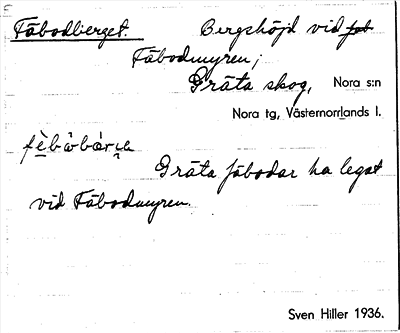 Fäbodberget. Bergshöjd vid fäb
Fäbodmyren;
Gräta skog, Nora s:n
Nora tg, Västernorrlands l.
Gräta fäbodar ha legat
vid Fäbodmyren.
Sven Hiller 1936.